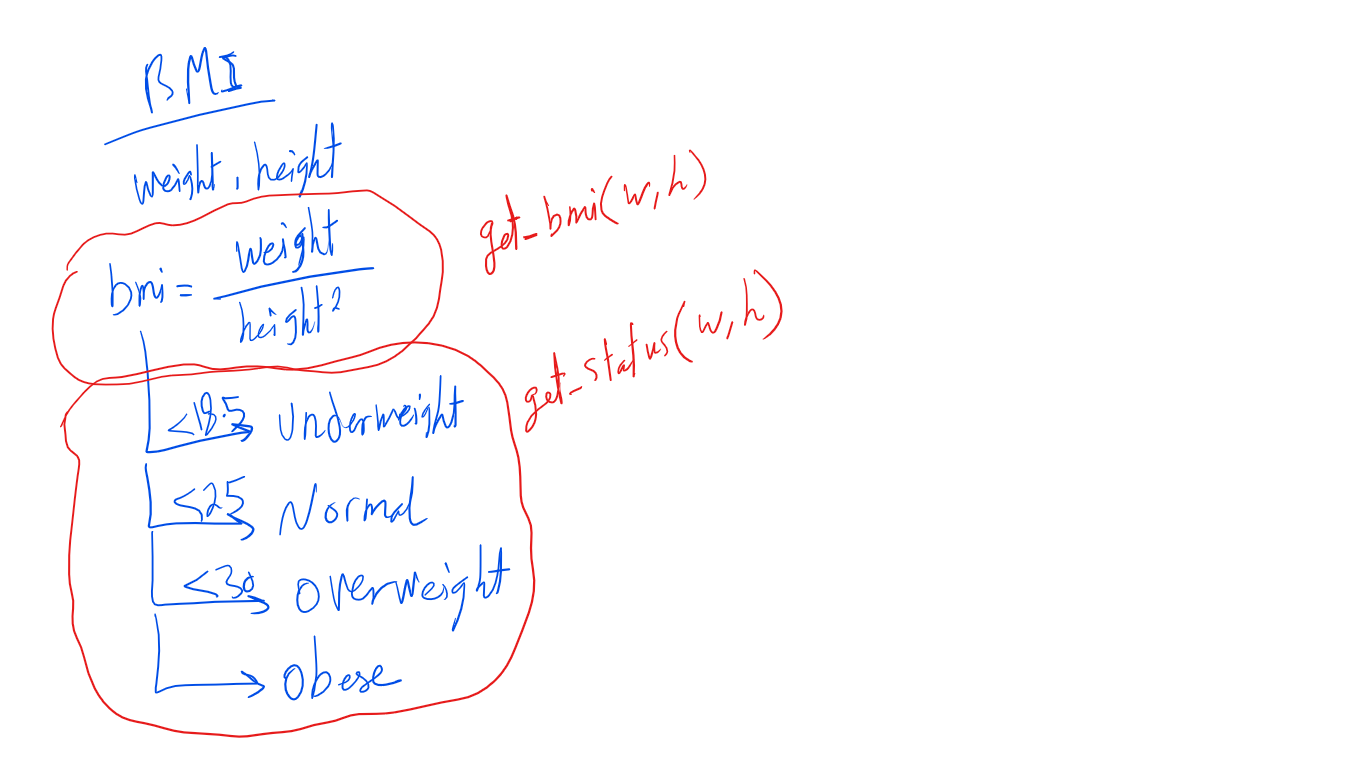 BMI
weight, height
bmi = weight / height²
get_bmi(w,h)
get_status(w,h)
<18.5 Underweight
<25 Normal
<30 overweight
Obese